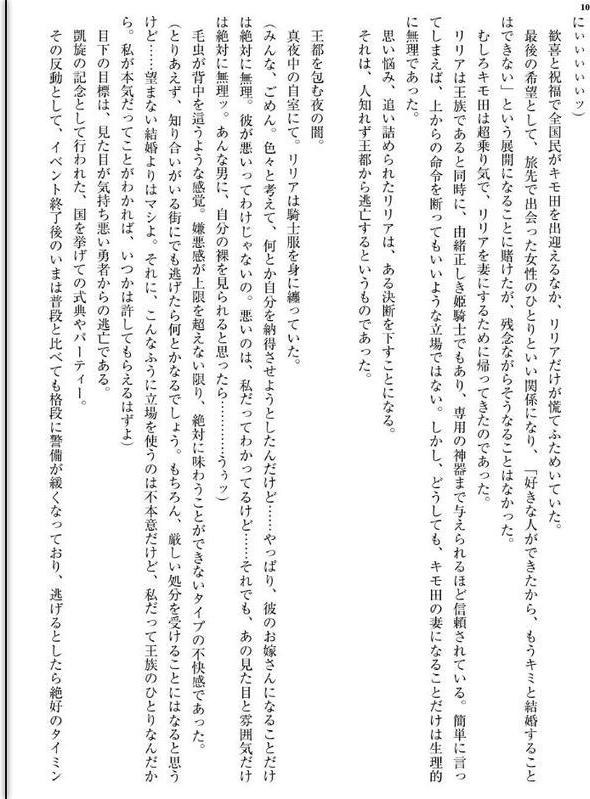 10
にぃぃぃぃぃッ）
　歓喜と祝福で全国民がキモ田を出迎えるなか、リリアだけが慌てふためいていた。
　最後の希望として、旅先で出会った女性のひとりといい関係になり、「好きな人ができたから、もうキミと結婚すること
はできない」という展開になることに賭けたが、残念ながらそうなることはなかった。
　むしろキモ田は超乗り気で、リリアを妻にするために帰ってきたのであった。
　リリアは王族であると同時に、由緒正しき姫騎士でもあり、専用の神器まで与えられるほど信頼されている。簡単に言っ
てしまえば、上からの命令を断ってもいいような立場ではない。しかし、どうしても、キモ田の妻になることだけは生理的
に無理であった。
　思い悩み、追い詰められたリリアは、ある決断を下すことになる。
　それは、人知れず王都から逃亡するというものであった。
　王都を包む夜の闇。
　真夜中の自室にて。リリアは騎士服を身に纏っていた。
（みんな、ごめん。色々と考えて、何とか自分を納得させようとしたんだけど……やっぱり、彼のお嫁さんになることだけ
は絶対に無理。彼が悪いってわけじゃないの。悪いのは、私だってわかってるけど……それでも、あの見た目と雰囲気だけ
は絶対に無理ッ。あんな男に、自分の裸を見られると思ったら…………うぅッ）
　毛虫が背中を這うような感覚。嫌悪感が上限を超えない限り、絶対に味わうことができないタイプの不快感であった。
（とりあえず、知り合いがいる街にでも逃げたら何とかなるでしょう。もちろん、厳しい処分を受けることにはなると思う
けど……望まない結婚よりはマシよ。それに、こんなふうに立場を使うのは不本意だけど、私だって王族のひとりなんだか
ら。私が本気だってことがわかれば、いつかは許してもらえるはずよ）
　目下の目標は、見た目が気持ち悪い勇者からの逃亡である。
　凱旋の記念として行われた、国を挙げての式典やパーティー。
　その反動として、イベント終了後のいまは普段と比べても格段に警備が緩くなっており、逃げるとしたら絶好のタイミン